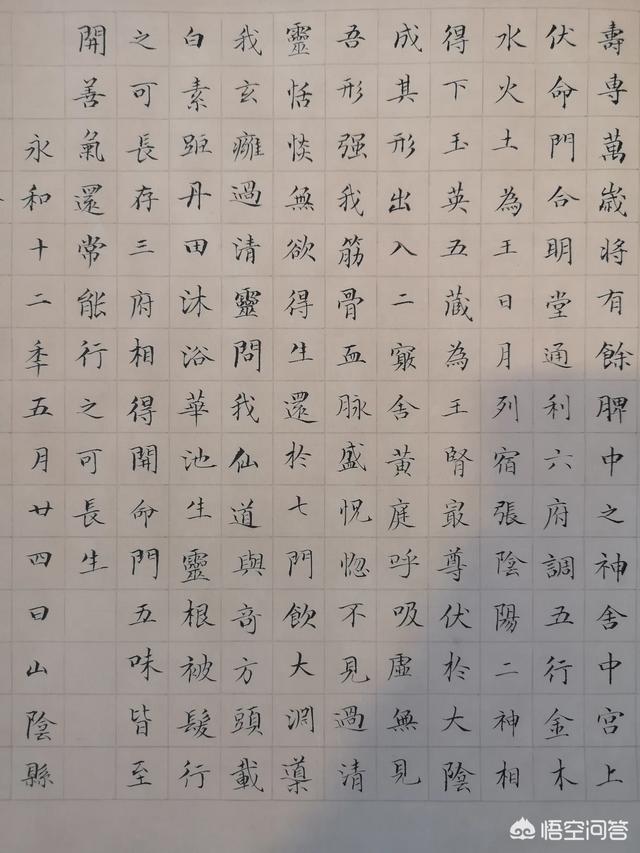 壽專萬歲將有餘脾中之神舍中宮上
伏命門合明堂通利六府調五行金木
水火土為王日月列宿張陰陽二神相
得下玉英五藏為王腎寂尊伏於大陰
成其形出入二竅舍黃庭呼吸虛無見
吾形强我筋骨血脉盛怳惚不見過清
靈恬惔無欲得生還於七門飲大淵導
我玄癰過清靈問我仙道與奇方頭載
白素距丹田沐浴華池生靈根被髮行
之可長存三府相得開命門五味皆至
開善氣還常能行之可長生
永和十二年五月廿四日山陰縣
悟空问答